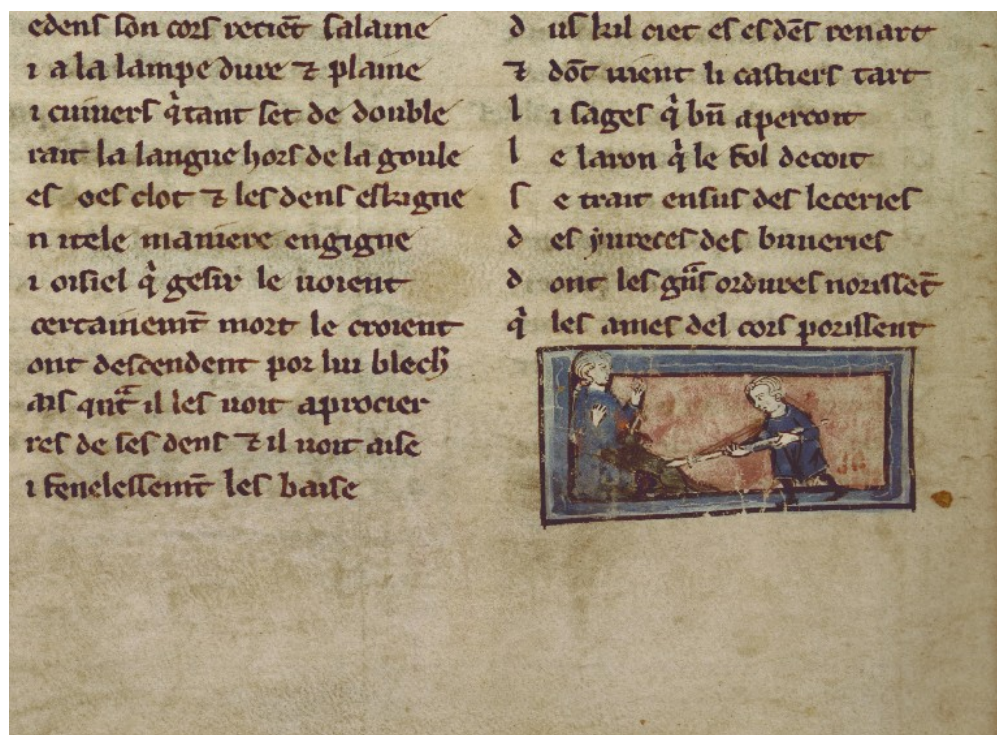 edens son cors retiēt salaine
ı a la lampe dure ⁊ plaine
ı cuiuers q̇ tant set de double
rait la langue hors de la goule
es oes clot ⁊ les dens eskigne
n itele maniere engigne
ı oisiel q̇ gesir le uoient
certainemt̄ mort le croient
ont descendent por lui blech
ais qnt̄ il les uoit aprocier
res de ses dens ⁊ il uoit aise
ı fenelessemt̄ les baise
d us kil ciet es es dēs renart
⁊ dōt uient li castiers tart
l ı sages q̇ bn̄ apercoit
l e laron q̇ le fol decoit
s e trait ensus des leceries
d es yureces des buueries
d ont les gns̄ ordures norissēt
q̇ les ames del cors porissent